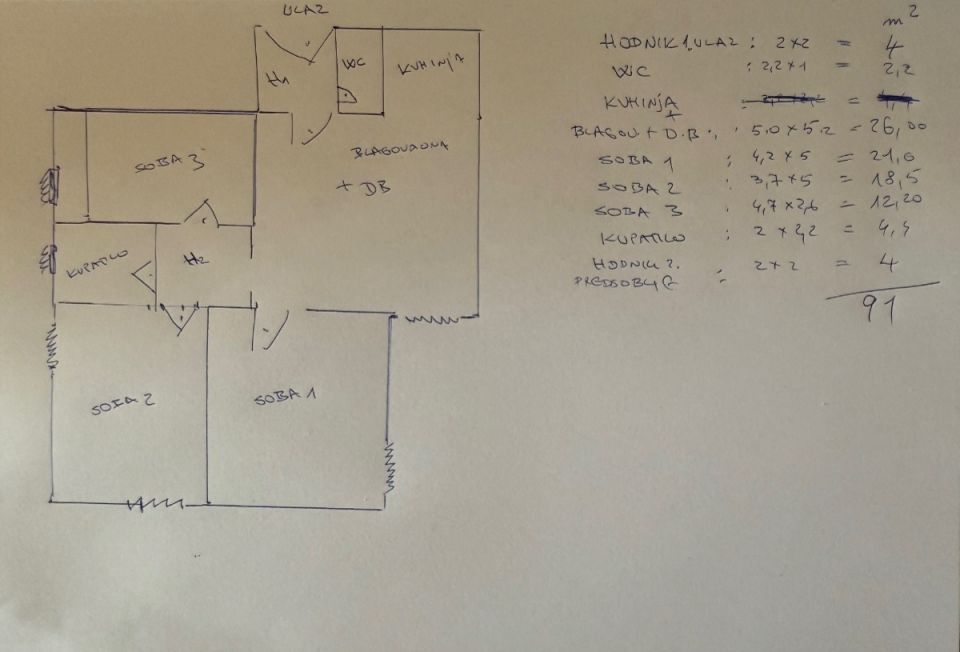 ULAZ
H1
WC
KUHINJA
BLAGOVAONA
+ DB
SOBA 3
KUPATILO
H2
SOBA 2
SOBA 1
m²
HODNIK 1, ULAZ : 2x2 = 4
WC : 2,2x1 = 2,2
KUHINJA =
+
BLAGOV + D.B. : 5.0 x 5.2 = 26,00
SOBA 1 : 4,2 x 5 = 21,0
SOBA 2 : 3,7 x 5 = 18,5
SOBA 3 : 4,7 x 2,6 = 12,20
KUPATILO : 2 x 2,2 = 4,4
HODNIK 2. 2x2 = 4
PREDSOBLJE :
91